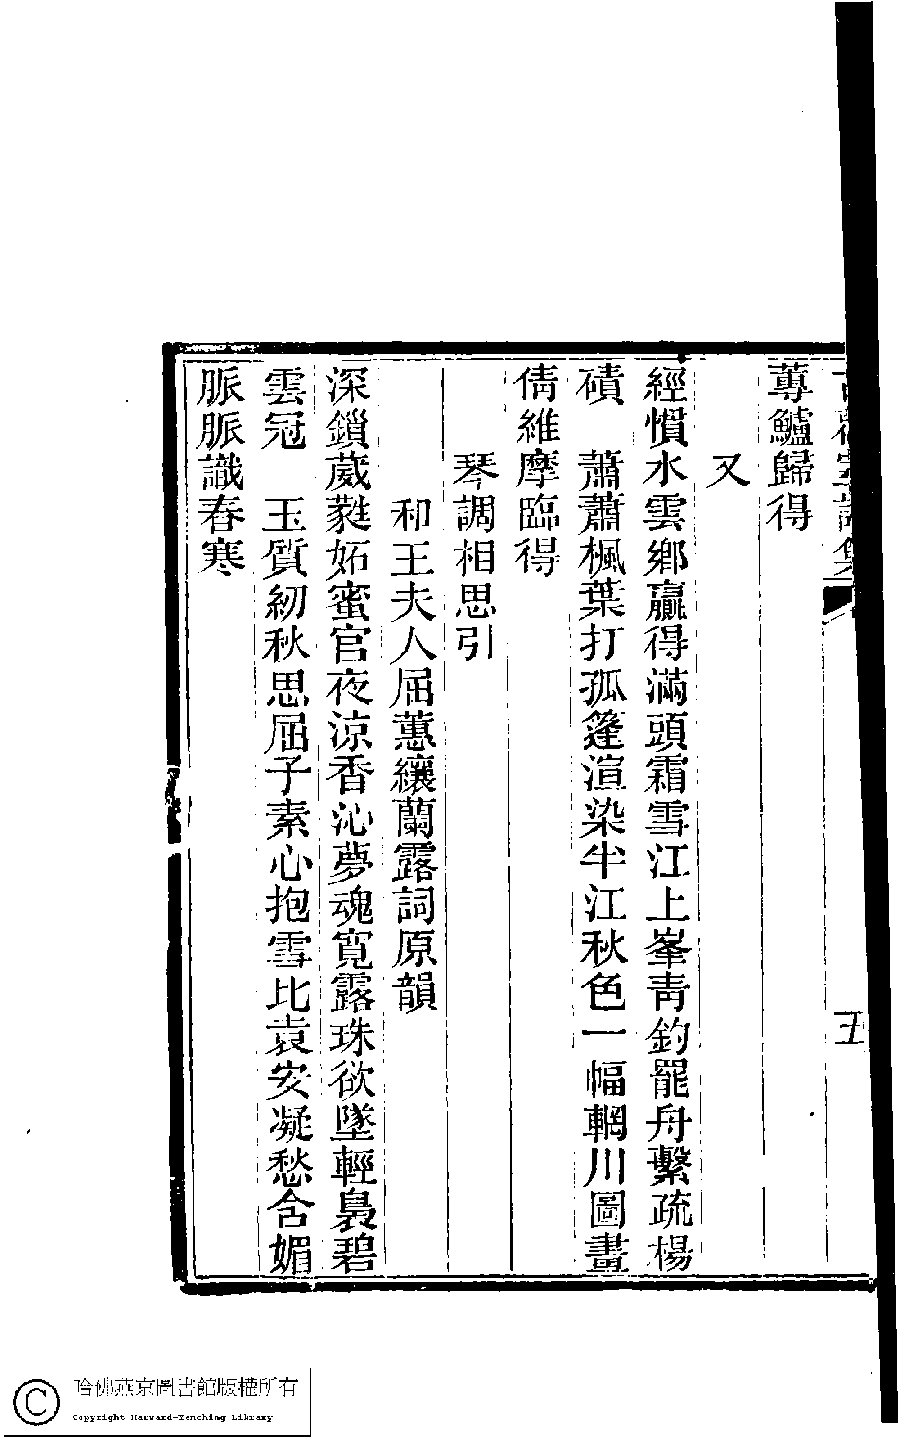 蓴鱸歸得
又
經慣水雲鄉贏得滿頭霜雪江上峯青釣罷舟繫疏楊
磧　蕭蕭楓葉打孤篷渲染半江秋色一幅輞川圖畫
倩維摩臨得
琴調相思引
和王夫人屈蕙纕蘭露詞原韻
深鎖葳蕤妬蜜官夜涼香沁夢魂寬露珠欲墜輕裊碧
雲冠　玉質紉秋思屈子素心抱雪比袁安凝愁含媚
脈脈識春寒
五
哈佛燕京圖書館版權所有
Copyright Harvard-Yenching Library